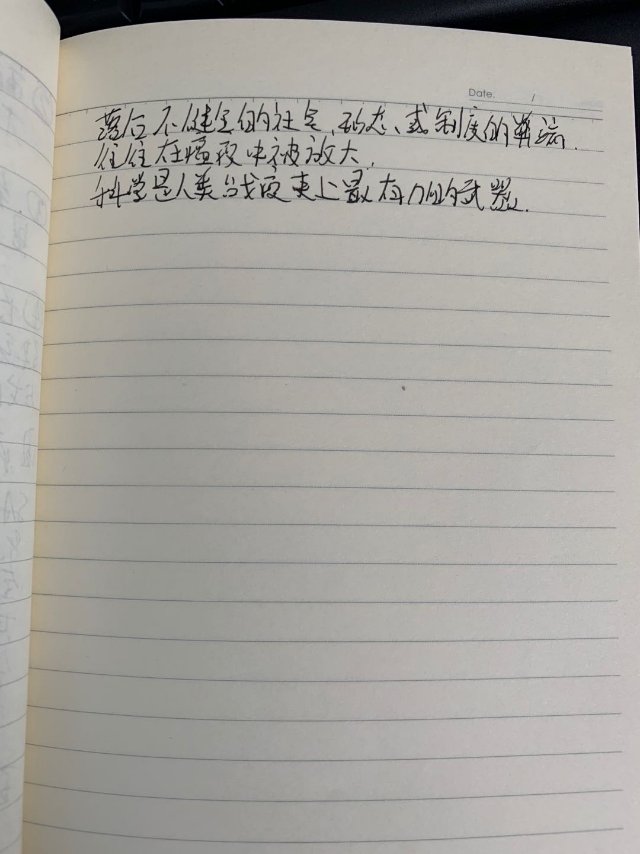 Date. /
落后不健全的社会、动态、或制度的弊病.
往往在瘟疫中被放大,
科学是人类战疫史上最有力的武器.